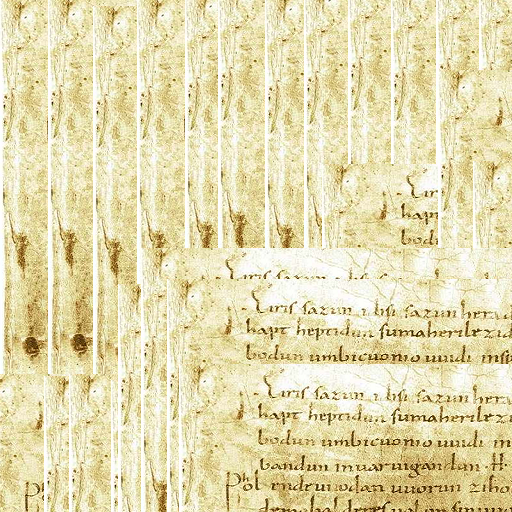 Eir
hapt
bodu
Eiris sazun idisi sazun
Eiris sazun idisi sazun hera
hapt heptidun sumaherilezid
bodun umbicuonio uuidi insp
Eiris sazun idisi sazun hera
hapt heptidun sumaherilez
bodun umbicuonio uuidi in
bandun inuar uigandun .H.
Ph
Phol endeuuodan uuorun ziho